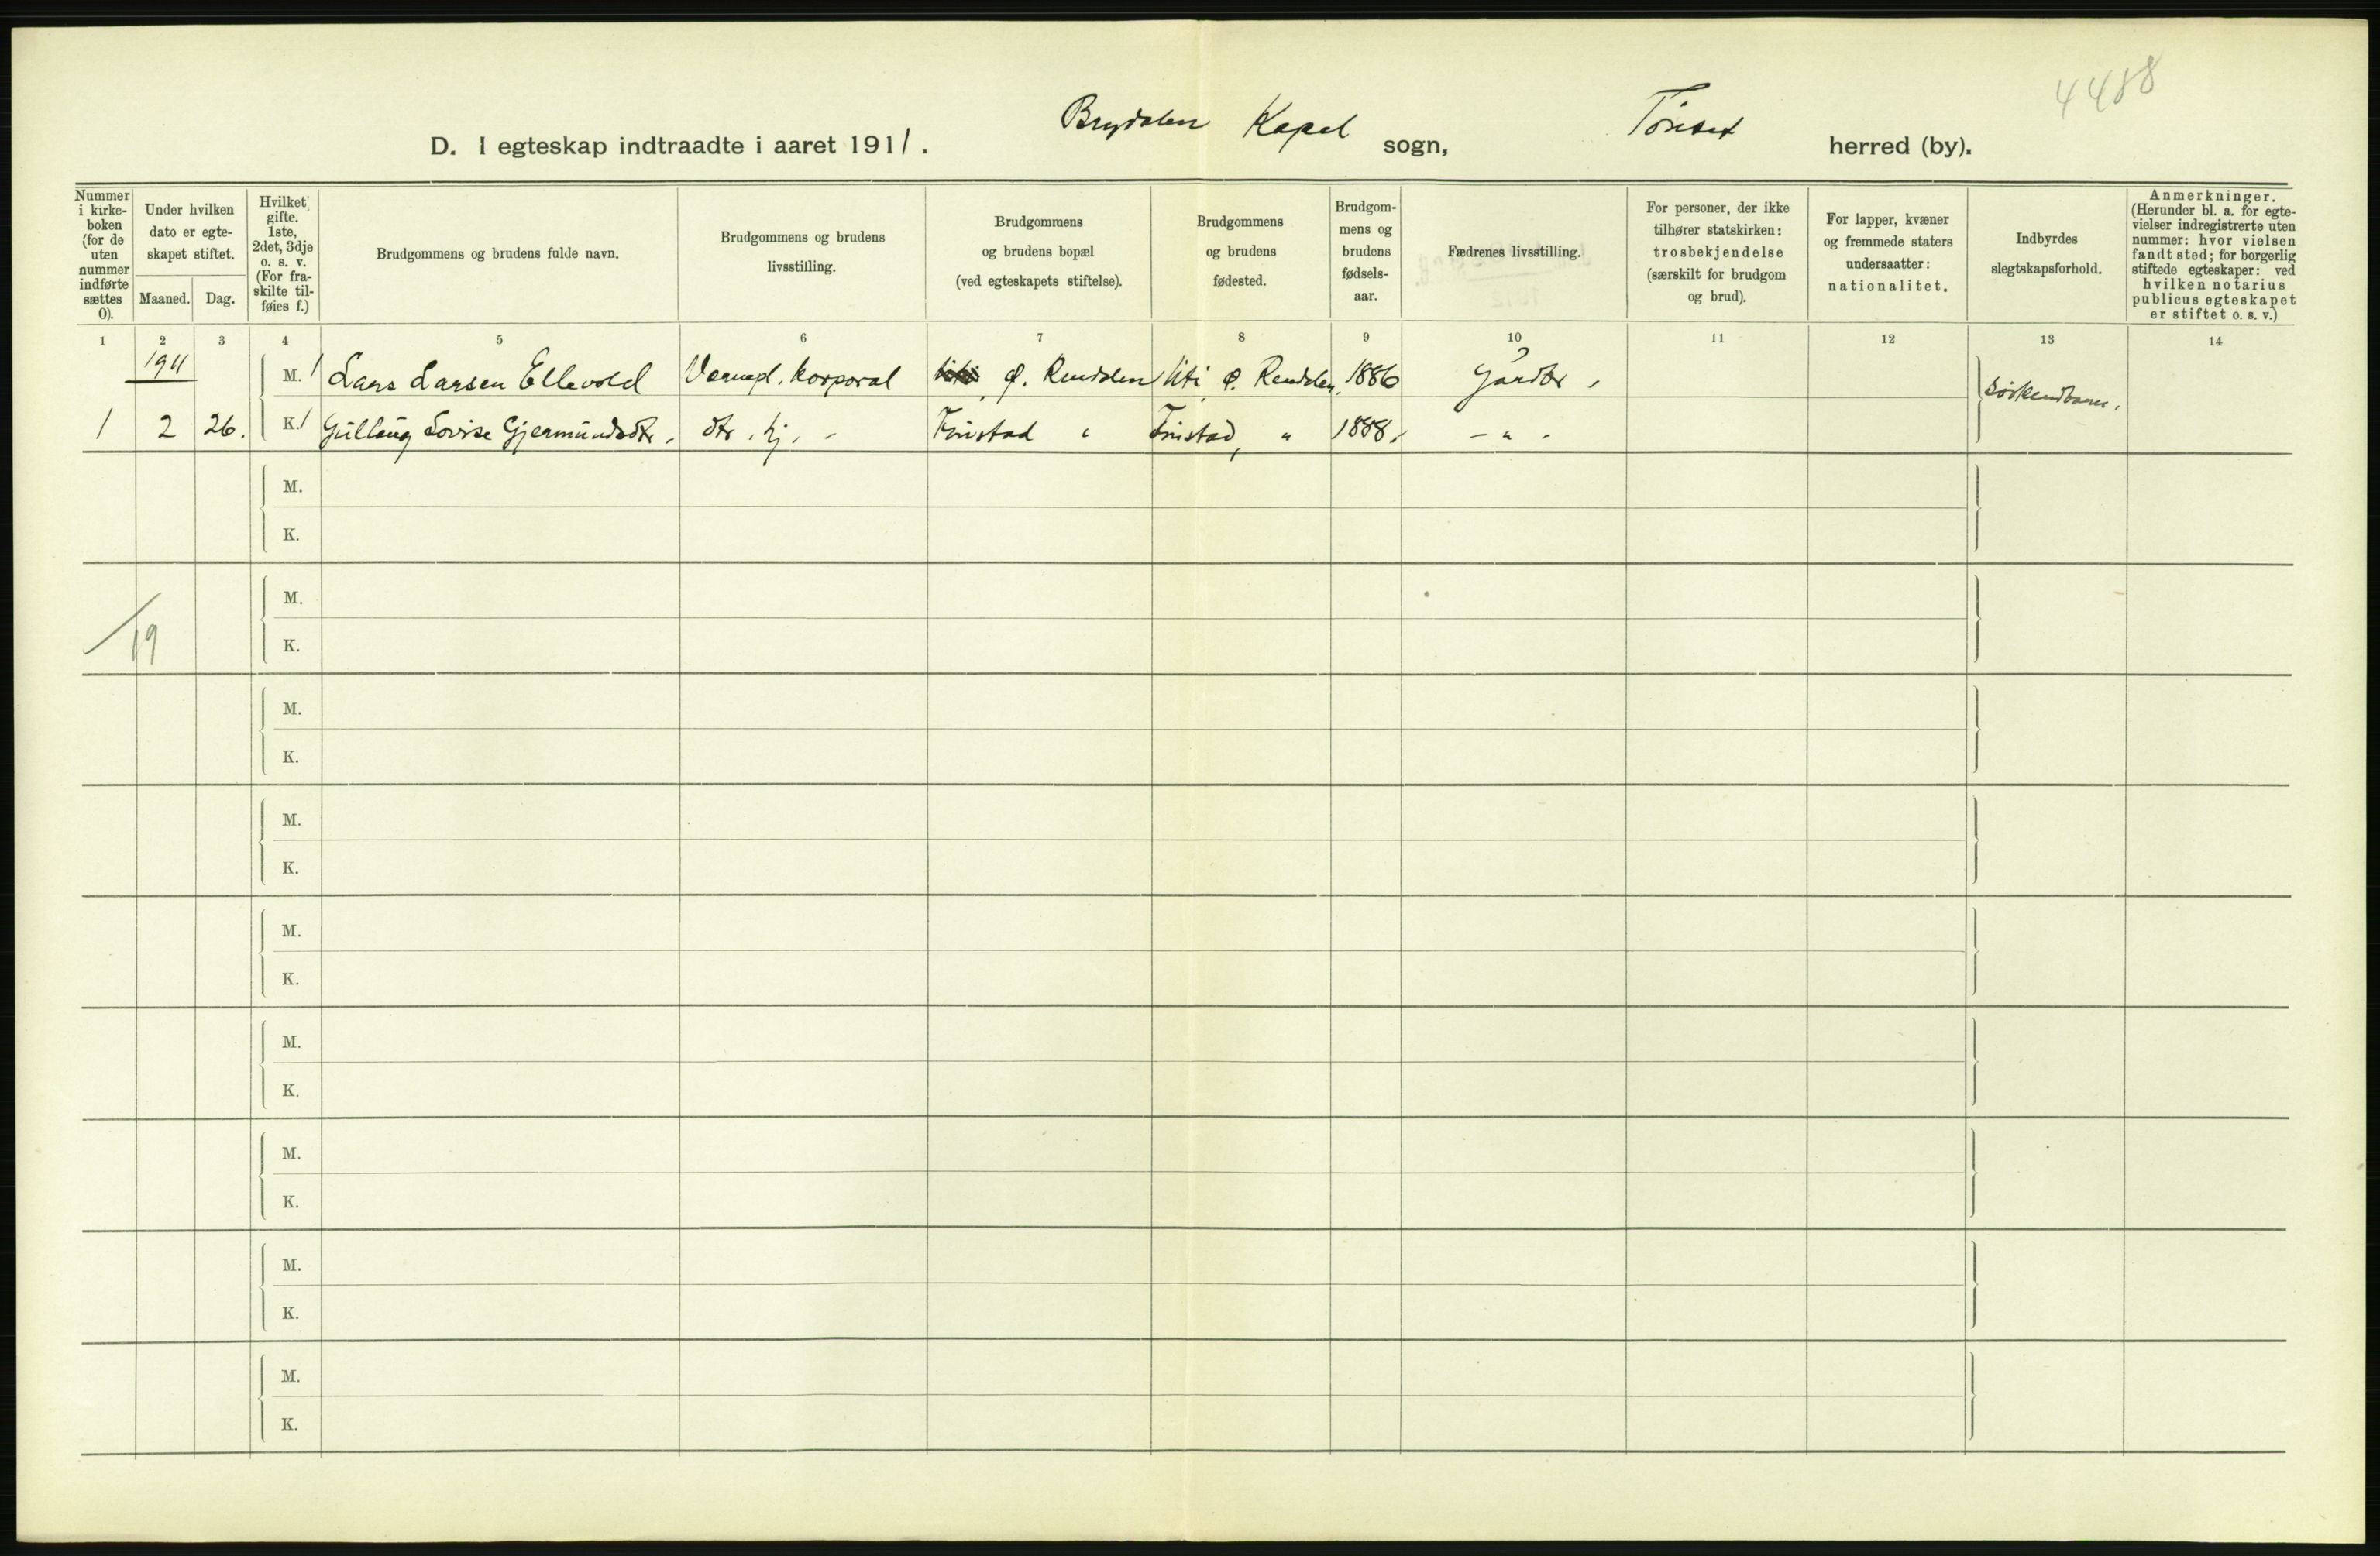 4488
D. I egteskap indtraadte i aaret 1911. Brydalen Kapel sogn, Tönset herred (by).
Nummer i kirke-boken (for de uten nummer indførte sættes 0).
Under hvilken dato er egte-skapet stiftet.
Maaned. Dag.
Hvilket gifte. 1ste, 2det, 3dje o. s. v. (For fra-skilte til-føies f.)
Brudgommens og brudens fulde navn.
Brudgommens og brudens livsstilling.
Brudgommens og brudens bopæl (ved egteskapets stiftelse).
Brudgommens og brudens fødested.
Brudgom-mens og brudens fødsels-aar.
Fædrenes livsstilling.
For personer, der ikke tilhører statskirken: trosbekjendelse (særskilt for brudgom og brud).
For lapper, kvæner og fremmede staters undersaatter: nationalitet.
Indbyrdes slegtskapsforhold.
Anmerkninger. (Herunder bl. a. for egte-vielser indregistrerte uten nummer: hvor vielsen fandt sted; for borgerlig stiftede egteskaper: ved hvilken notarius publicus egteskapet er stiftet o. s. v.)
1 2 3 4 5 6 7 8 9 10 11 12 13 14
1911 M. 1 Lars Larsen Ellevold Vernepl. korporal Ø. Rendalen Uti Ø. Rendalen 1886 Gårdbr. Söskendbarn.
1 2 26. K. 1 Gullaug Lovise Gjermundsdtr. dtr. hj. - Finstad " Finstad, " 1888. - " -
M.
K.
M.
19
K.
M.
K.
M.
K.
M.
K.
M.
K.
M.
K.
M.
K.
M.
K.